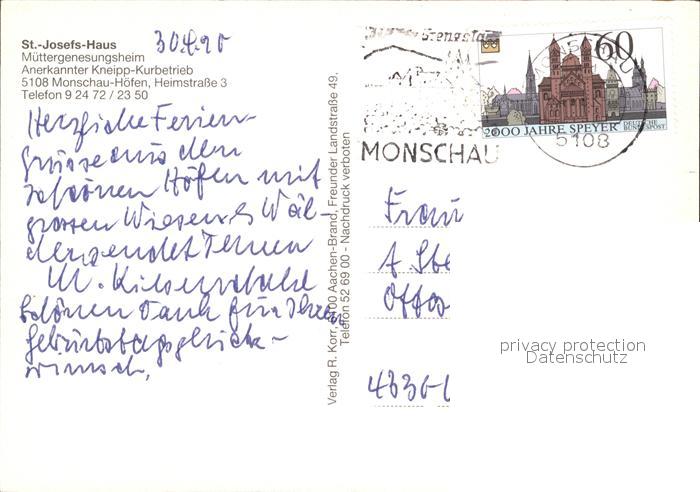 St.-Josefs-Haus
Müttergenesungsheim
Anerkannter Kneipp-Kurbetrieb
5108 Monschau-Höfen, Heimstraße 3
Telefon 9 24 72 / 23 50
Herzliche Ferien-
grüsse aus dem
schönen Höfen mit
grossen Wiesen & Wäl-
dern sendet Ihnen
M.
Schönen Dank für Ihren
Geburtstagsglück-
wunsch.
Verlag R. Korr, 5100 Aachen-Brand, Freunder Landstraße 49,
Telefon 52 69 00 - Nachdruck verboten
MONSCHAU
60
2000 JAHRE SPEYER
DEUTSCHE
BUNDESPOST
5108
Frau
A
privacy protection
Datenschutz